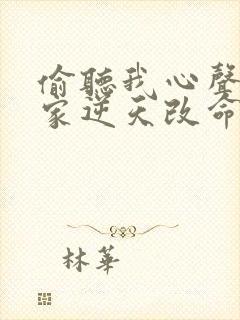 偷聽我心聲
家逆天改命
林華